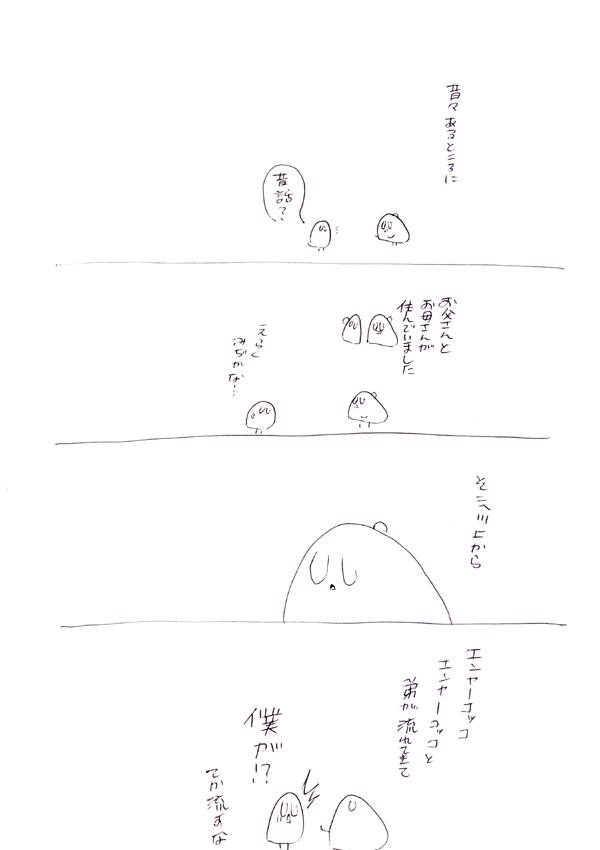 昔々あるところに
昔話？
お父さんと
お母さんが
住んでいました
えらく
みぢかな…
そこへ川上から
エンヤーコッコ
エンヤーコッコと
弟が流れてきて
僕が!?
てか流すな